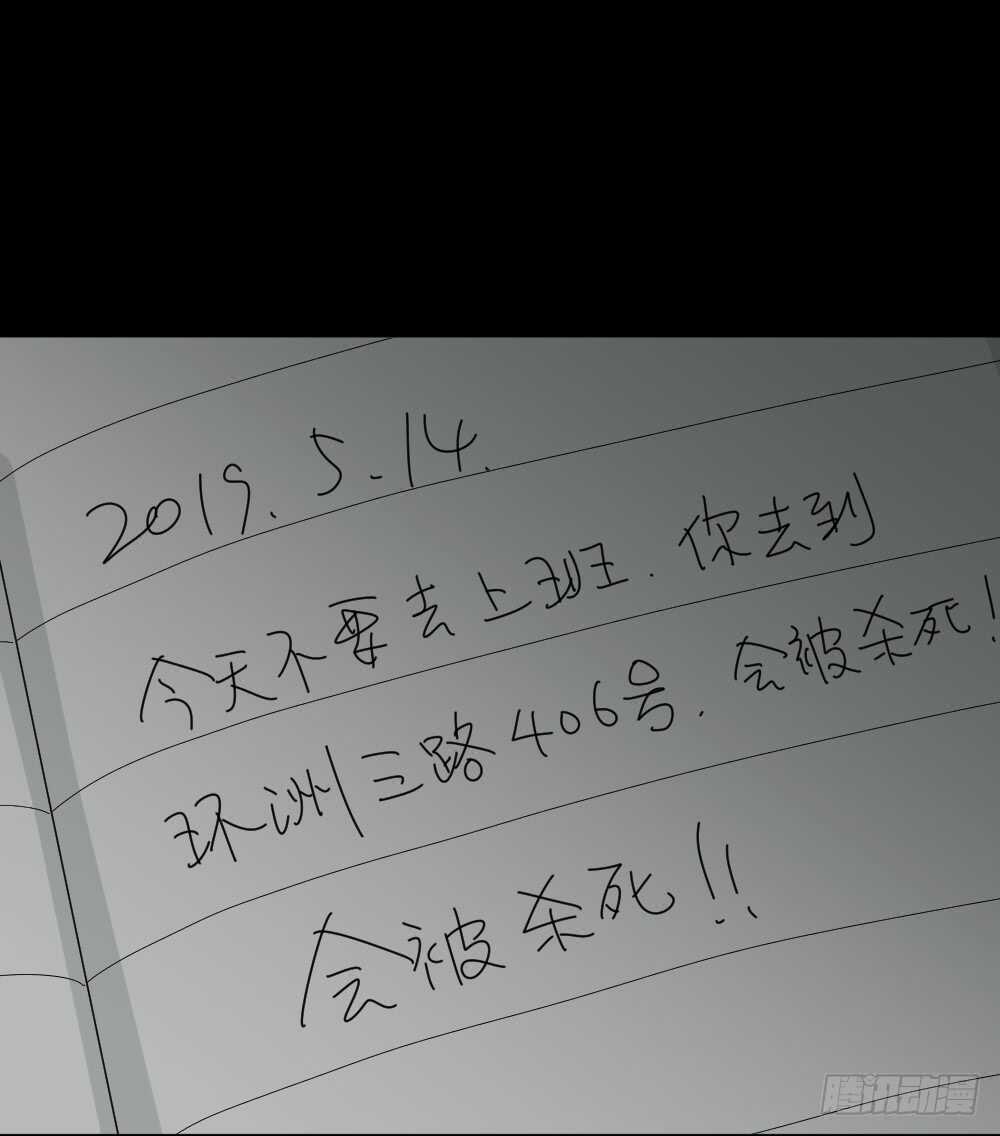 2019.5.14.
今天不要去上班.你去到
环洲三路406号.会被杀死!
会被杀死!!
腾讯动漫